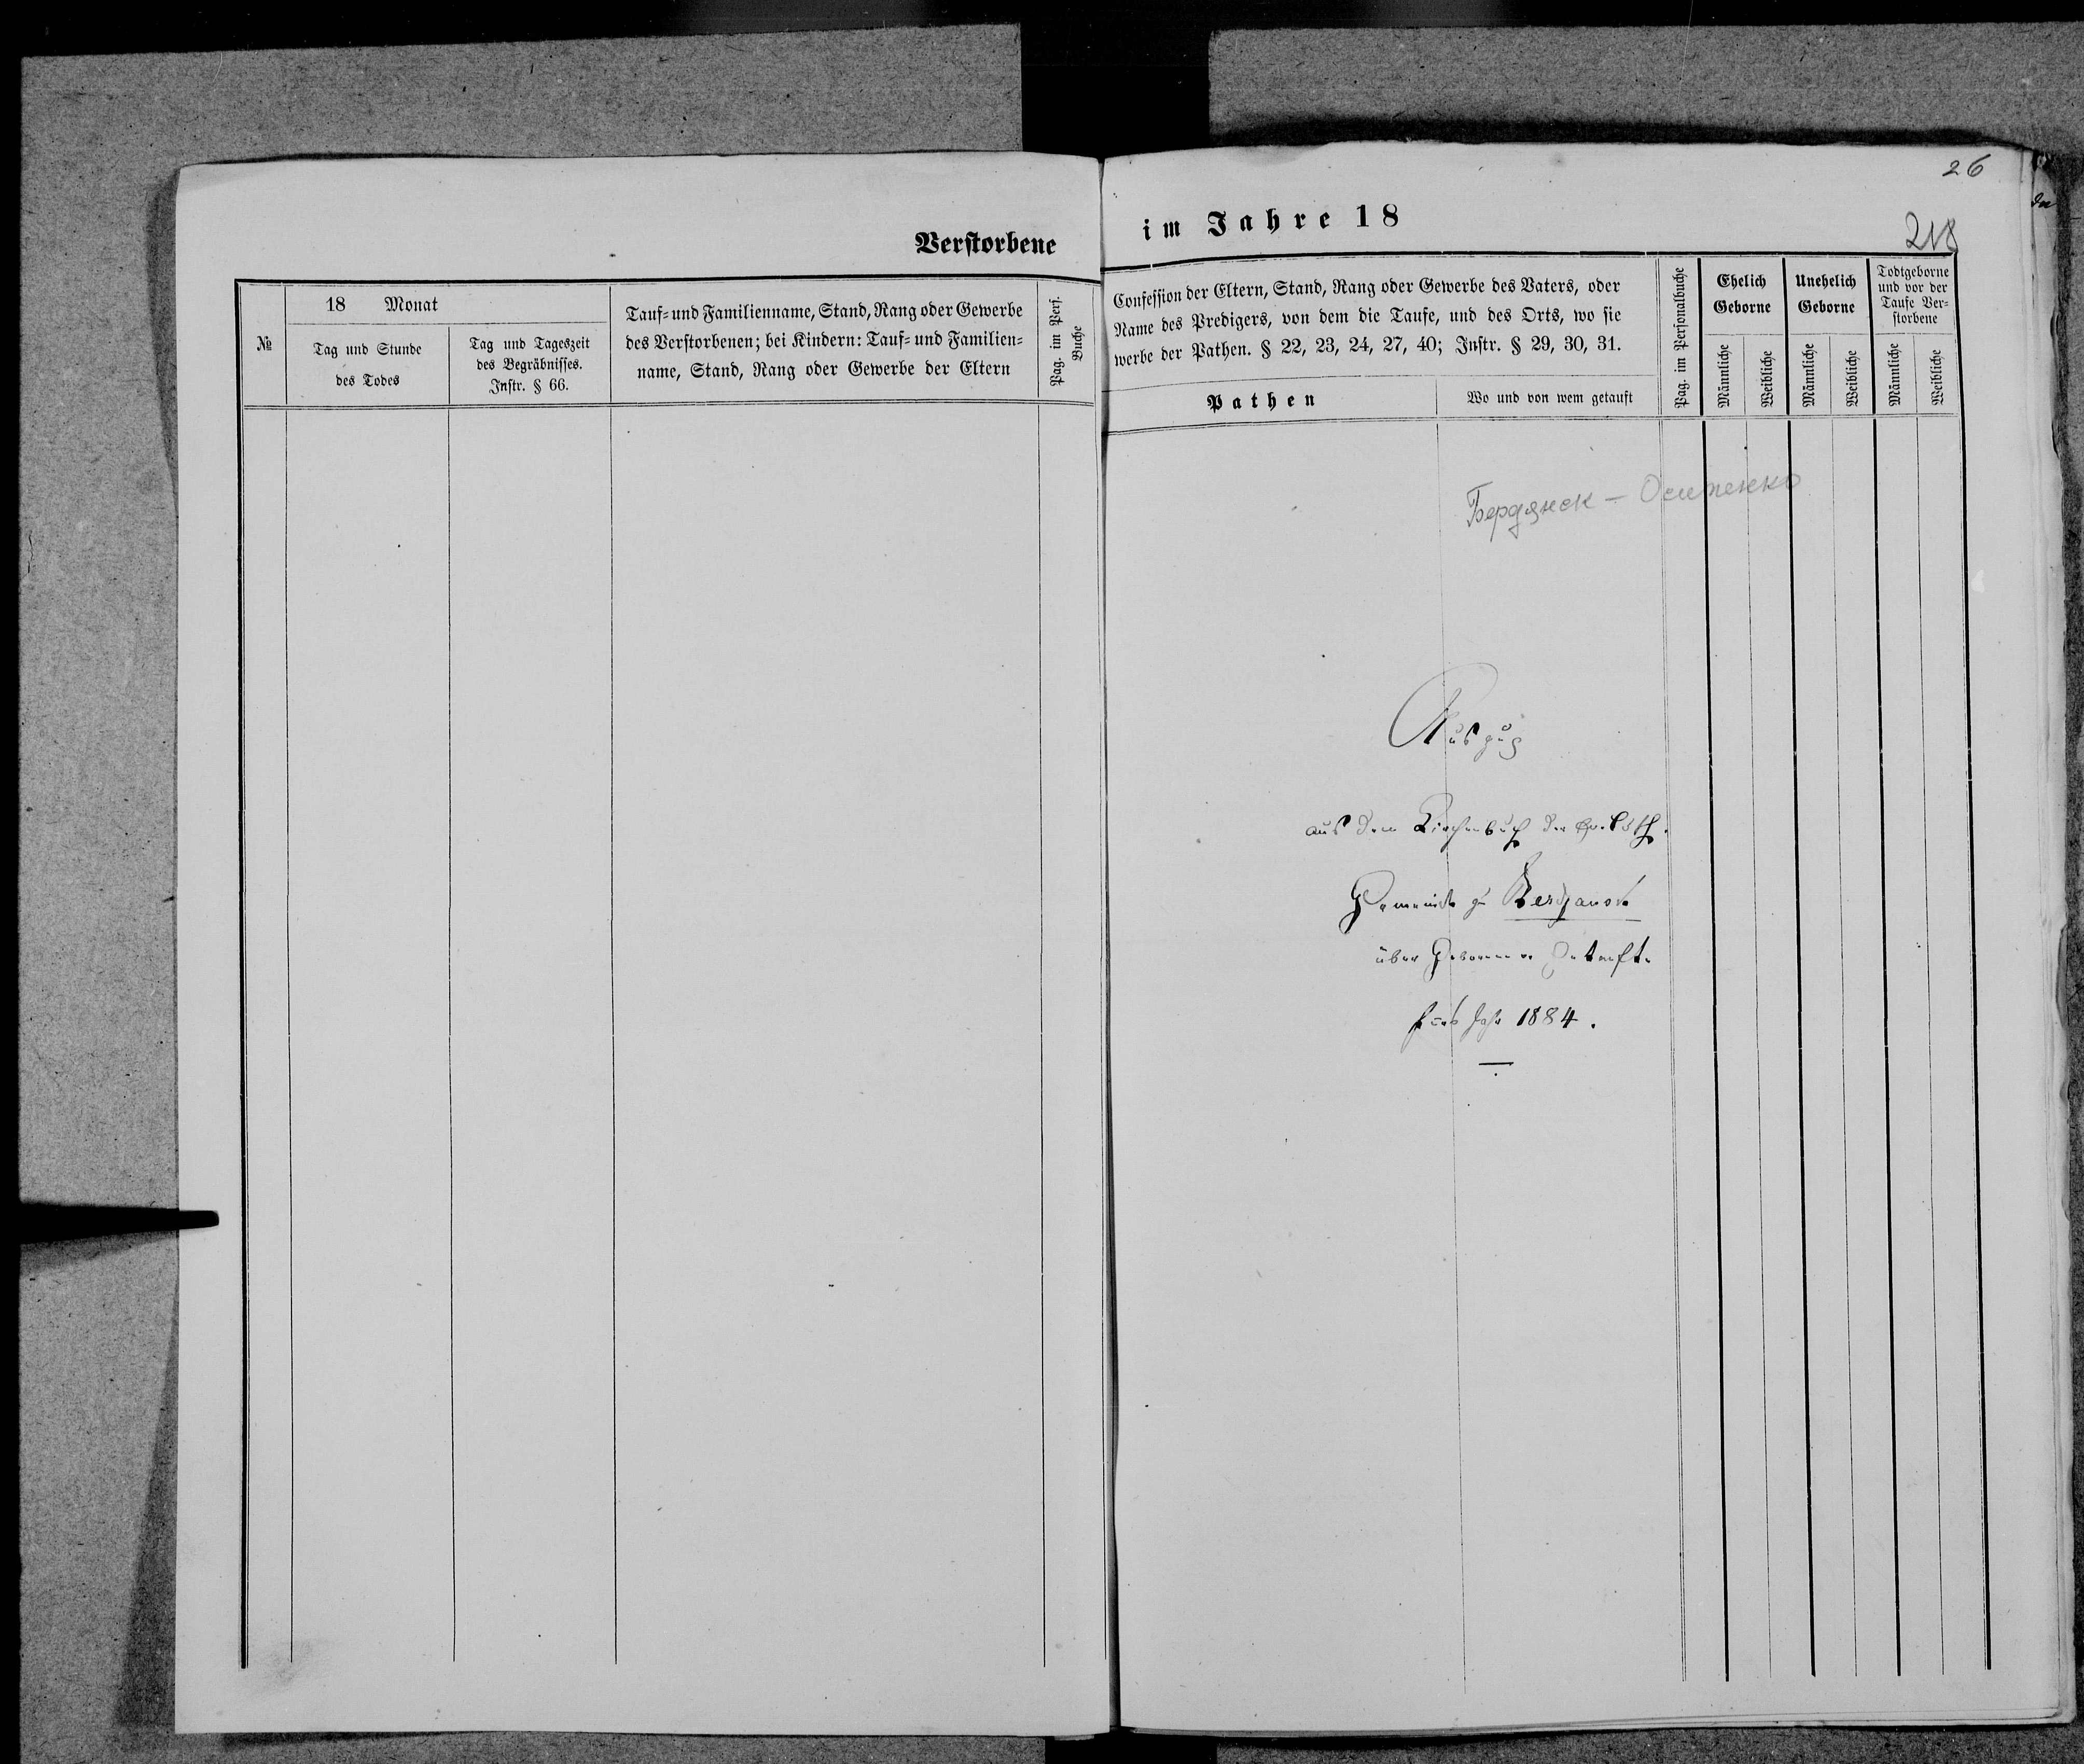 Verstorbene
№
18 Monat
Tag und Stunde
des Todes
Tag und Tageszeit
des Begräbnisses.
Instr. § 66.
Tauf- und Familienname, Stand, Rang oder Gewerbe
des Verstorbenen; bei Kindern: Tauf- und Familien-
name, Stand, Rang oder Gewerbe der Eltern
Pag. im Pers.
Buche
26
im Jahre 18
218
Confession der Eltern, Stand, Rang oder Gewerbe des Vaters, oder
Name des Predigers, von dem die Taufe, und des Orts, wo sie
werbe der Pathen. § 22, 23, 24, 27, 40; Instr. § 29, 30, 31.
Pathen
Wo und von wem getauft
Pag. im Personalbuche
Ehelich
Geborne
Männliche
Weibliche
Unehelich
Geborne
Männliche
Weibliche
Todtgeborne
und vor der
Taufe Ver-
storbene
Männliche
Weibliche
Бердянск - Осипенко
Auszug
aus dem Kirchenbuch der Ev. Luth.
Gemeinde zu Berdjansk
über Geborene u. Getaufte
fürs Jahr 1884.